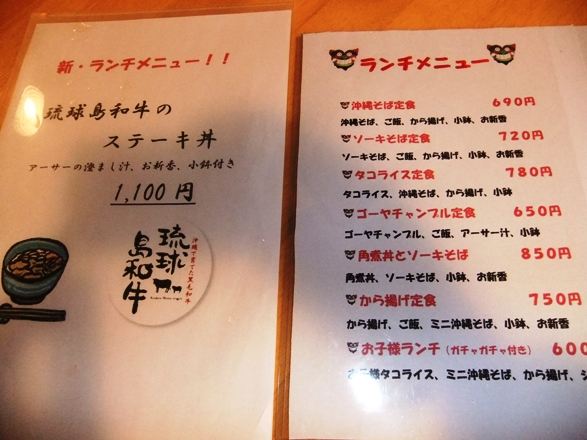 新・ランチメニュー！！
琉球島和牛の
ステーキ丼
アーサーの澄まし汁、お新香、小鉢付き
1,100円
沖縄で育てた黒毛和牛
琉球
島和牛
ランチメニュー
沖縄そば定食 690円
沖縄そば、ご飯、から揚げ、小鉢、お新香
ソーキそば定食 720円
ソーキそば、ご飯、から揚げ、小鉢、お新香
タコライス定食 780円
タコライス、沖縄そば、から揚げ、小鉢
ゴーヤチャンプル定食 650円
ゴーヤチャンプル、ご飯、アーサー汁、小鉢
角煮丼とソーキそば 850円
角煮丼、ソーキそば、小鉢、お新香
から揚げ定食 750円
から揚げ、ご飯、ミニ沖縄そば、小鉢、お新香
お子様ランチ（ガチャガチャ付き） 600
お子様タコライス、ミニ沖縄そば、から揚げ、ジ